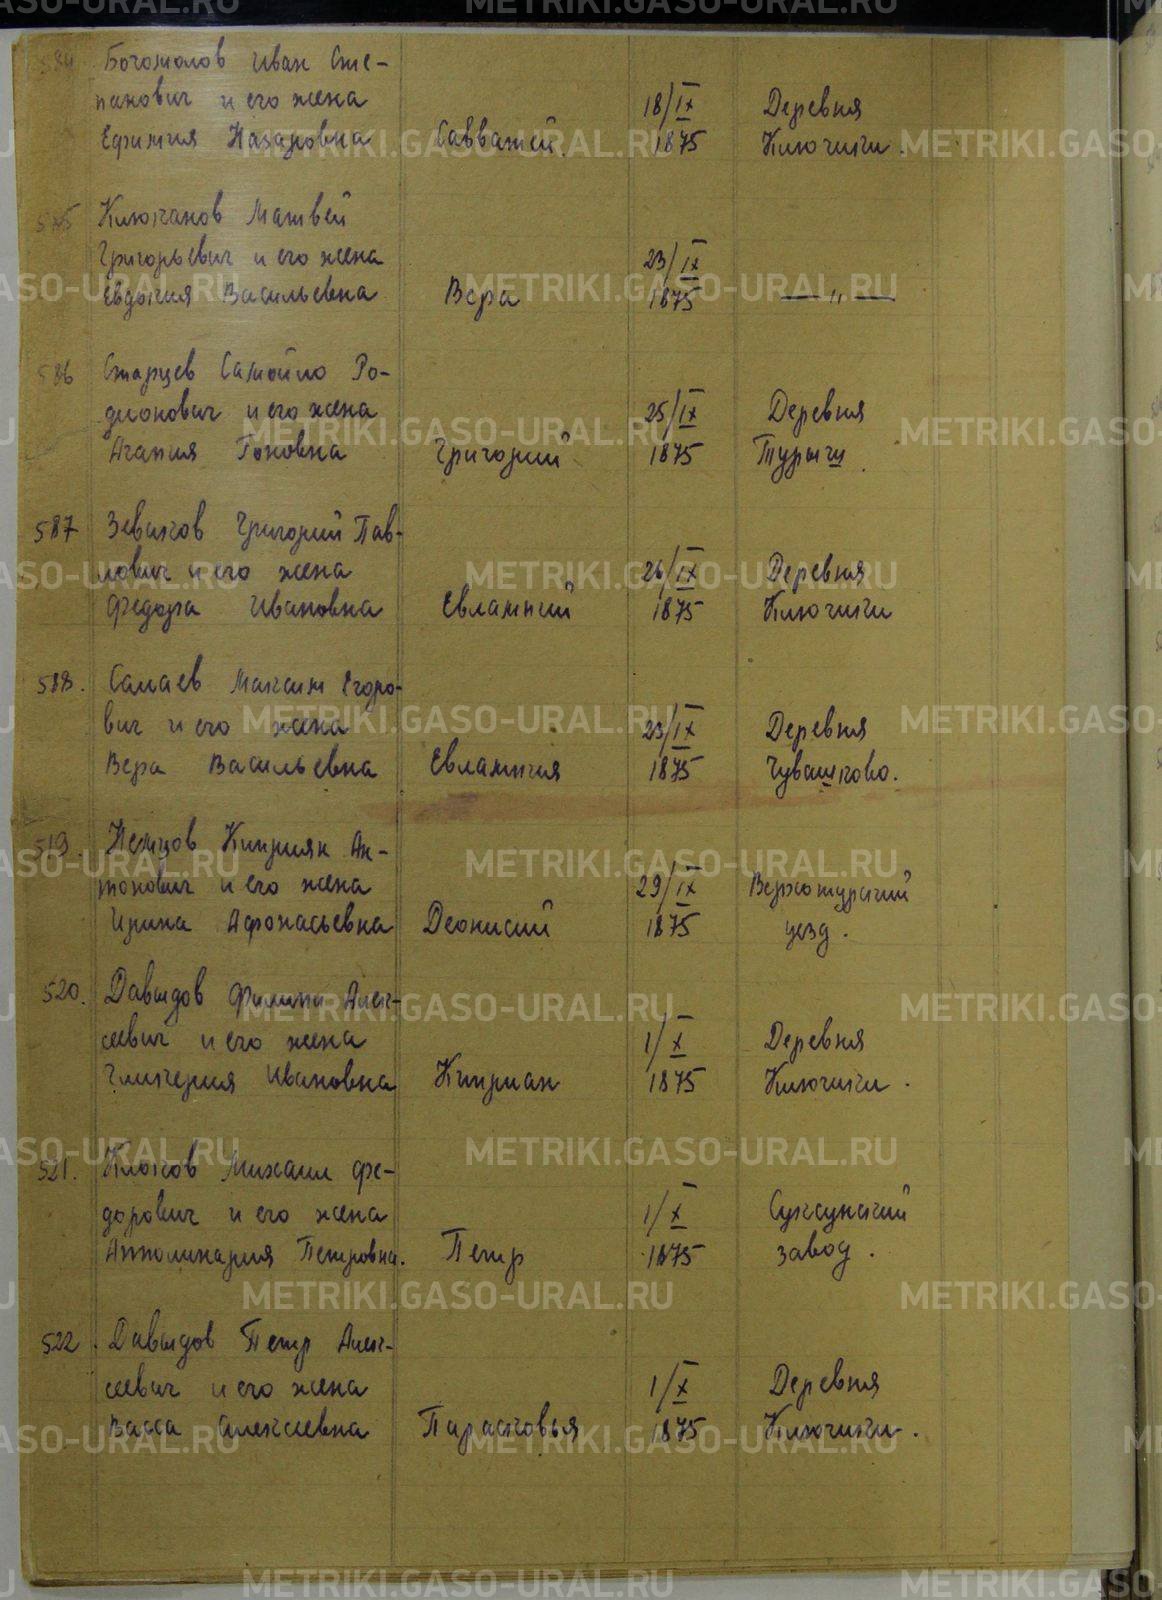 METRIKI.GASO-URAL.RU
584 Богомолов Иван Сте-
панович и его жена
Ефимия Назаровна
Савватей.
18/IX
1875
Деревня
Ключики.
585 Ключанов Матвей
Григорьевич и его жена
Евдокия Васильевна
Вера
23/IX
1875
— " —
586 Старцев Самойло Ро-
дионович и его жена
Агапия Гоновна
Григорий
25/IX
1875
Деревня
Турыш.
587 Зевахов Григорий Пав-
лович и его жена
Федора Ивановна
Евлампий
26/IX
1875
Деревня
Ключики
588. Салаев Максим Егоро-
вич и его жена
Вера Васильевна
Евлампия
23/IX
1875
Деревня
Чувашково.
519. Немцов Киприян Ан-
тонович и его жена
Ирина Афонасьевна
Деонисий
29/IX
1875
Верхотурский
уезд.
520. Давыдов Филипп Алек-
сеевич и его жена
Гликерия Ивановна
Киприан
1/X
1875
Деревня
Ключики.
521. Клюков Михаил Фе-
дорович и его жена
Апполинария Петровна.
Петр
1/X
1875
Суксунский
завод.
522. Давыдов Петр Алек-
сеевич и его жена
Васса Алексеевна
Парасковья
1/X
1875
Деревня
Ключики.